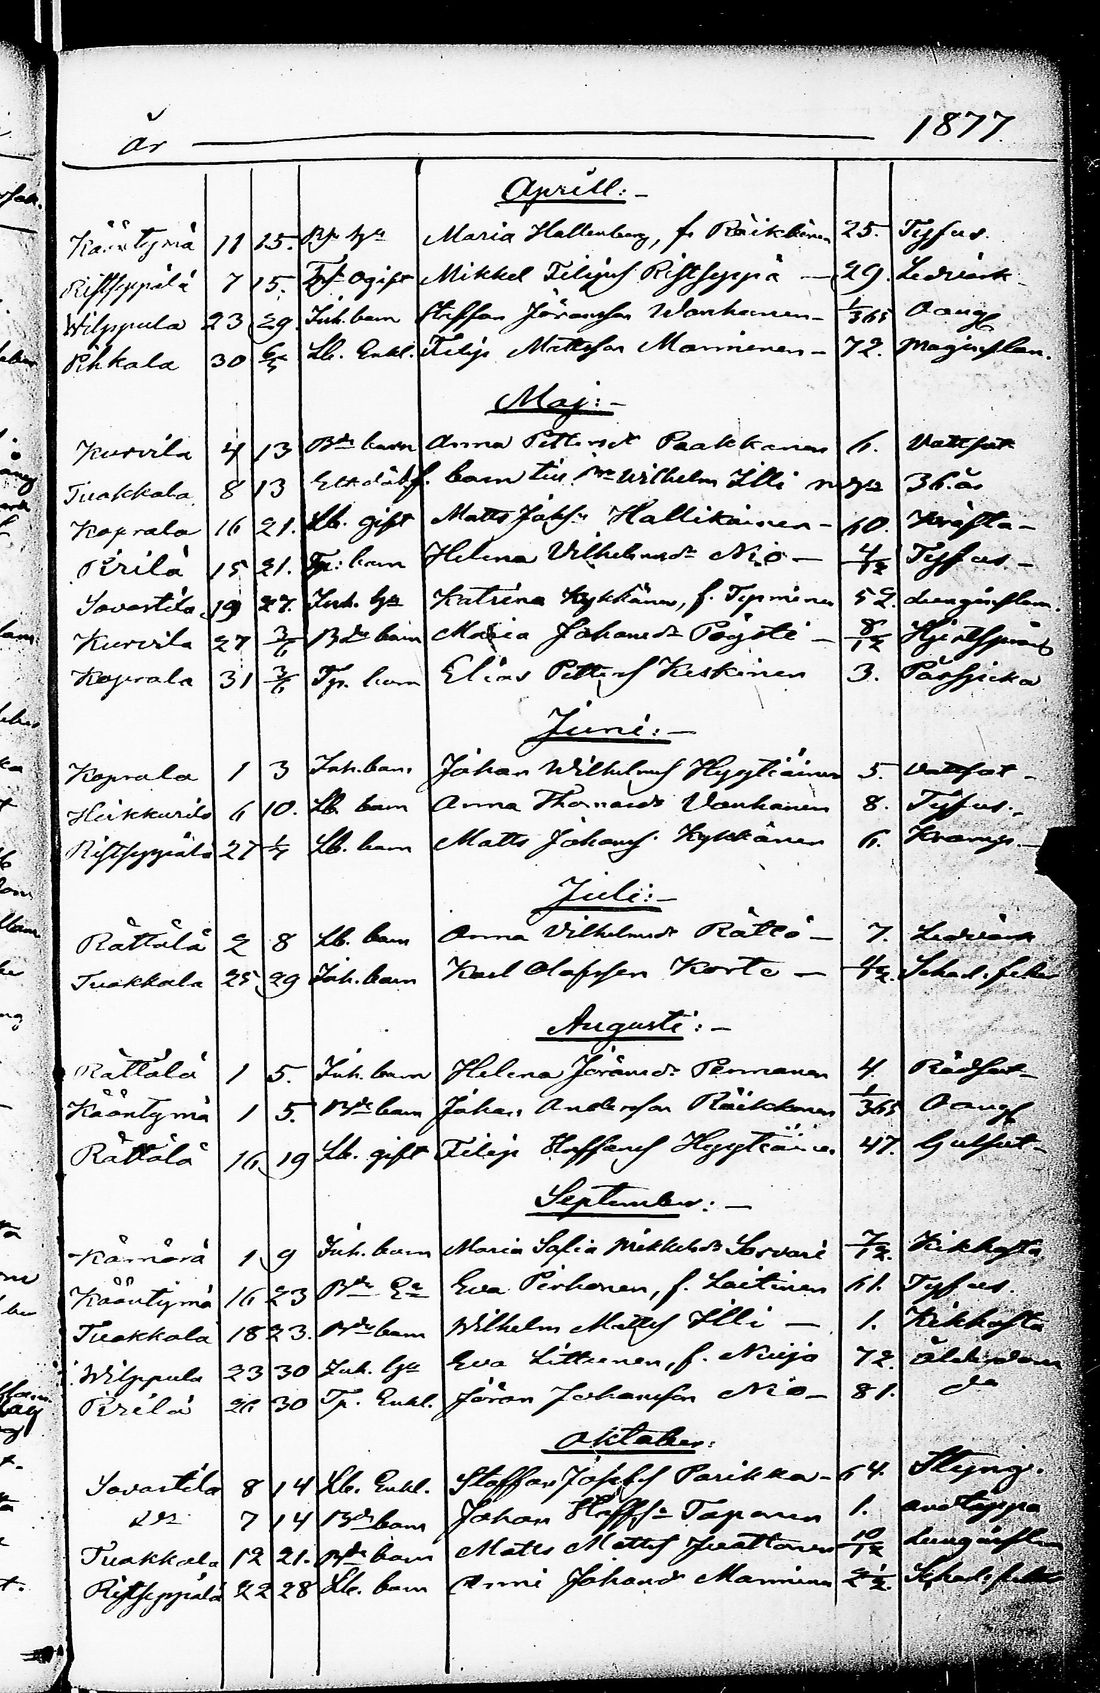 år 1877.
Aprill:-
Kääntymä 11 15. Maria Hallenberg, f. Räikkönen 25. Tyfus.
Ristseppälä 7 15. ogift Mikkel Filips Ristseppä — 29. Ledvärk
Wilppula 23 29. Inh. barn Staffan Jöransson Wanhanen — 1/365 Oangf
Pihkala 30 6/5 Lb. Enkl. Filip Mattsson Manninen — 72. Maginflam.
Maj:-
Kurvila 4 13 Bds barn Anna Pettersdr Paakkanen 6. Vattsot
Tuokkola 8 13 Ett dödf. barn till Wilhelm Illi 36. år
Koprala 16 21. Lb. gift Matts Jakfs Hallikainen — 60. Kräfta —
Pirilä 15 21. Tp: barn Helena Vilhelmsdr Niö — 4/12 Tyfus. —
Sovastila 19 27. Inh. Katrina Kykkänen, f. Typminen 52. Lunginflam.
Kurvila 27 3/6 Bds barn Maria Johansdr Pöysti — 8/12
Koprala 31 3/6 Tp. barn Elias Petters Keskinen 3.
Juni:-
Koprala 1 3 Inh. barn Johan Wilhelms Hyytiäinen 5. Vattsot —
Heikkurila 6 10. Lb. barn Anna Thomasdr Vanhanen 8. Tyfus.
Ristseppälä 27 1/7 Lb. barn Matts Johans Kykkänen 6. Kramp. —
Juli:-
Rättälä 2 8 Lb. barn Anna Vilhelmsdr Rättö — 7. Ledvärk
Tuokkola 25 29 Inh. barn Karl Olofsson Korte — 4 1/2. Scharl. feber
Augusti:-
Rättälä 1 5. Inh. barn Helena Jöransdr Penmanen 4. Rödsot —
Kääntymä 1 5. Bds barn Johan Andersson Räikkönen 1/365 Oangf
Rättälä 16 19 Lb. gift Filip Staffans Hyytiäinen 47. Gulsot —
September:-
Kämärä 1 9 Inh. barn Maria Sofia Mikkelsdr Sorvari 7/12. Kikhosta
Kääntymä 16 23 Bds Ea Eva Pirhonen, f. Laitinen 61. Tyfus.
Tuokkola 18 23. Bds barn Wilhelm Matts Illi — 1. Kikhosta
Wilppula 23 30 Inh. Eva Littunen, f. Nuija 72. Ålderdom
Pirilä 26 30 Tp. Enkl. Jöran Johansson Niö — 81. do
Oktober:
Sovastila 8 14 Lb. Enkl. Staffan Josefs Parikka — 64. Styng.
do 7 14 Bds barn Johan Staffs Taponen 1. andtäppa
Tuokkola 12 21. Bds barn Matts Matts Juottonen 10/12 Lunginflam
Ristseppälä 22 28 Lb. barn Anni Johansdr Manninen 2 1/2. Scharl. feber